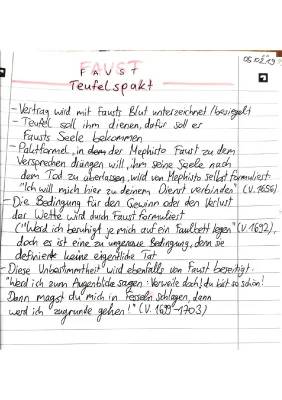 05.02.19
FAUST
FAUST
Teufelspakt
- Vertrag wird mit Fausts Blut unterzeichnet/besiegelt
- Teufel soll ihm dienen, dafür soll er
Fausts Seele bekommen
- Paktformel, in dem der Mephisto Faust zu dem
Versprechen drängen will, ihm seine Seele nach
dem Tod zu überlassen, wird von Mephisto selbst formuliert:
"Ich will mich hier zu deinem Dienst verbinden" (V. 1656)
- Die Bedingung für den Gewinn oder den Verlust
der Wette wird durch Faust formuliert
("Werd ich beruhigt je mich auf ein Faulbett legen" (V. 1692),
doch es ist eine zu ungenaue Bedingung, denn sie
definierte keine eigentliche Tat
- Diese Unbestimmtheit wird ebenfalls von Faust beseitigt.
"Werd ich zum Augenblicke sagen: Verweile doch! du bist so schön!
Dann magst du mich in Fesseln schlagen, dann
werd ich zugrunde gehen!" (V. 1699-1703)